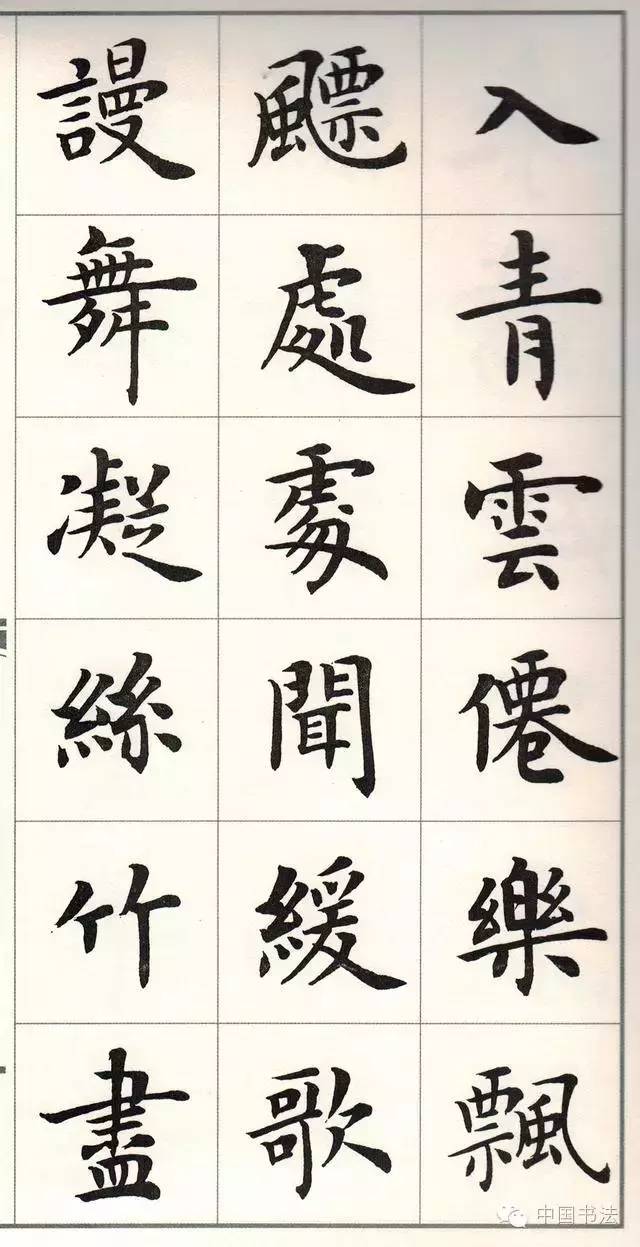 入青雲僊樂飄
飃處處聞緩歌
謾舞凝絲竹盡
中国书法